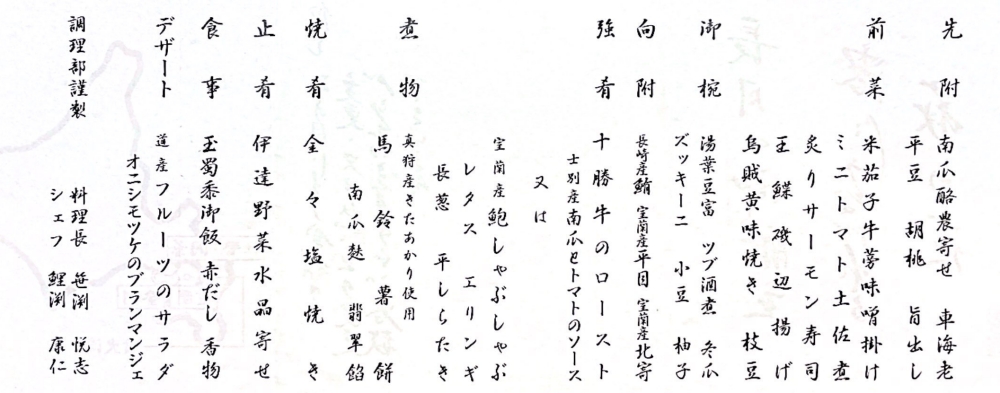 先附 南瓜酪農寄せ 車海老
平豆 胡桃 旨出し
前菜 米茄子牛蒡味噌掛け
ミニトマト土佐煮
炙りサーモン寿司
王鰈磯辺揚げ
烏賊黄味焼き 枝豆
御椀 湯葉豆富 ツブ酒煮 冬瓜
ズッキーニ 小豆 柚子
向附 長崎産鮪 室蘭産平目 室蘭産北寄
強肴 十勝牛のロースト
士別産南瓜とトマトのソース
又は
室蘭産鮑しゃぶしゃぶ
レタス エリンギ
長葱 平しらたき
煮物 真狩産きたあかり使用
馬鈴薯餅
南瓜麩 翡翠餡
焼肴 金々塩焼き
止肴 伊達野菜水晶寄せ
食事 玉蜀黍御飯 赤だし 香物
デザート 道産フルーツのサラダ
オニシモツケのブランマンジェ
調理部謹製 料理長 笹渕 悦志
シェフ 鯉渕 康仁